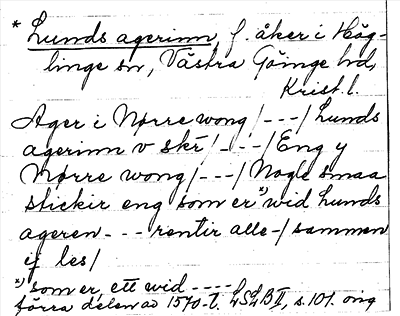 * Lunds agerinn, f. åker i Häg-
linge sn, Västra Göinge hd,
Krist. l.
Ager i Nørre wong /---/ Lunds
agerinn v skr̄ /---/ Eng y
Nørre wong /---/ Nogle smaa
stickir eng som er *) wid Lunds
ageren --- rentir alle -/ sammen
ij les/
*) som er, ett wid ----
förra delen av 1570-t. LSLB II, s. 101. orig